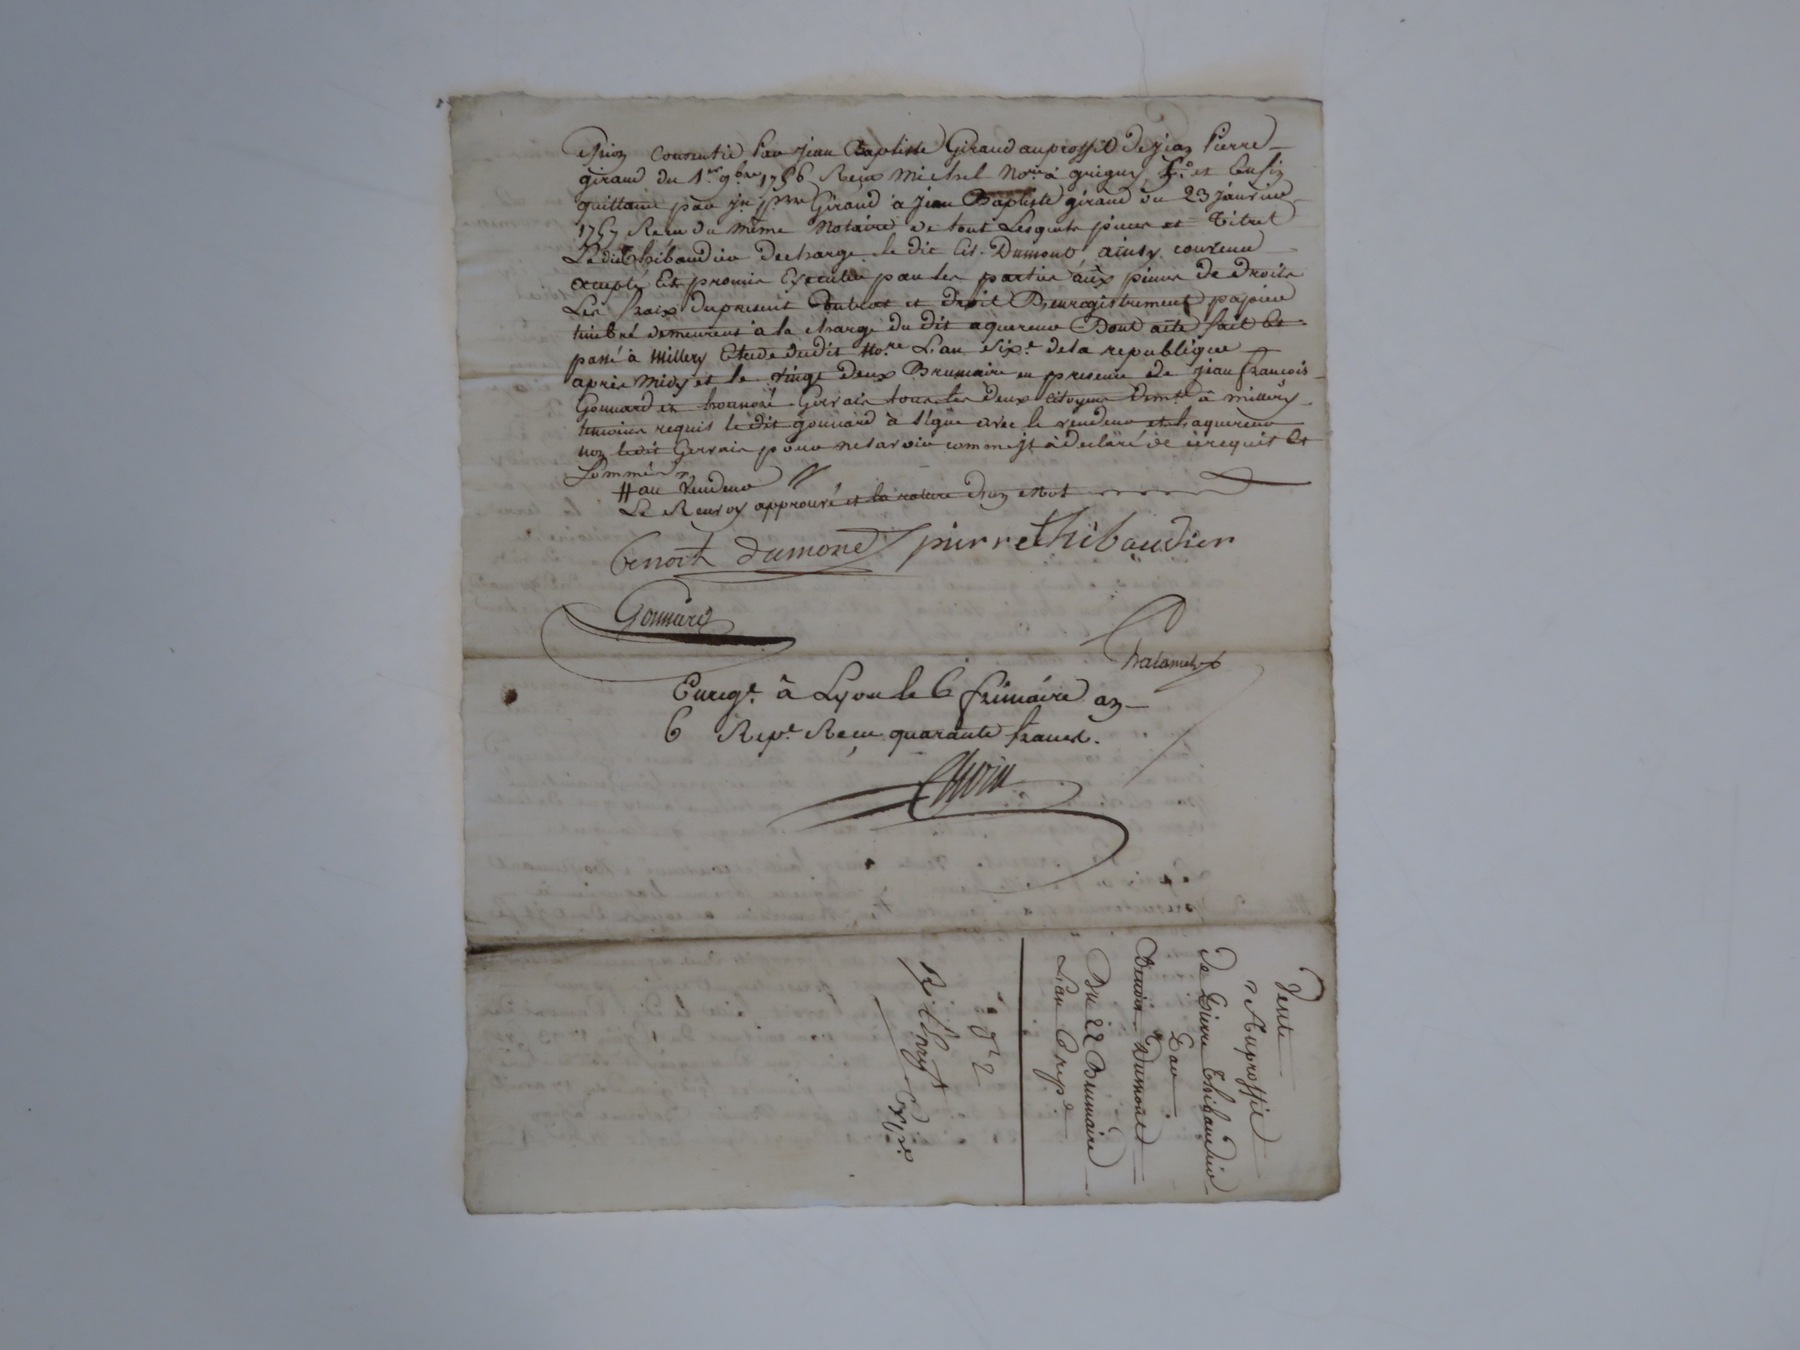 consentie Par Jean Baptiste Giraud au proffit de Jean Pierre
giraud du 1er 9bre 1756 Reçu Michel Nore à grigny et Enfin
quittance par jn pre Giraud à Jean Baptiste giraud du 23 janvier
1757 Recu du même Notaire de tout Lesquels pieces et Titret
Ledit Thibaudier decharge le dit Cit. Dumont, ainsy convenu
accepté Et promis Executer par les parties aux peines de droits
Les fraix du present Controt et droit D'enregistrement papier
timbré demeurent à la charge du dit aquereur Dont acte fait Et
passé à Millery Etude dudit Nore L'an sixe de la republique
après midy et le vingt deux Brumaire en presence de jean francois
Gonnard et honnoré Gervais tous les deux citoyens Demts à millery
temoins requis le dit gonnard à signé avec le vendeur et l'aquereur
non ledit Gervais pour ne savoir comme jl à declaré de ce requis Et
sommé
# au Vendeur //
Le Renvoy approuvé et la rature d'un mot
Benoit dumond pierre thibaudier
Gonnard
Chalamel
Enregt. à Lyon le 6 frimaire an
6 Repe. Recu quarante francs.
Vente
Au proffit
de Pierre Thibaudier
Par
Benoit Dumond
Du 22 Brumaire
L'an 6 repe.